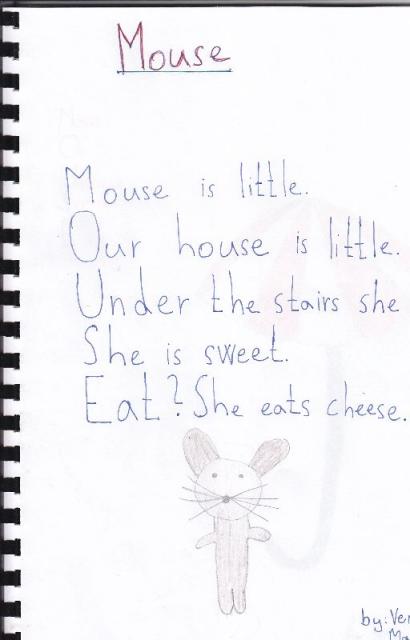 Mouse
Mouse is little.
Our house is little.
Under the stairs she
She is sweet.
Eat? She eats cheese.
by: